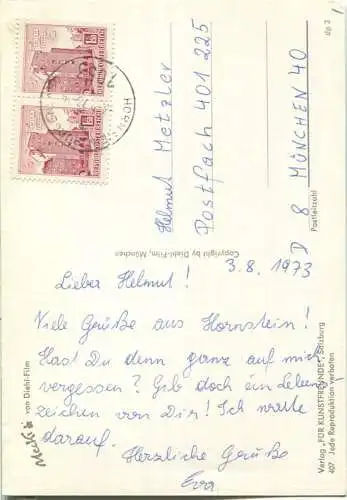 Helmut Metzler
Postfach 401 225
D 8 MÜNCHEN 40
Postleitzahl
3.8.1973
Lieber Helmut!
Viele Grüße aus Hornstein!
Hast Du denn ganz auf mich
vergessen? Gib doch ein Lebens-
zeichen von Dir! Ich warte
darauf.
Herzliche Grüße
Eva
Mecki von Diehl-Film
Copyright by Diehl-Film, München
Verlag „FÜR KUNSTFREUNDE", Salzburg
407 Jede Reproduktion verboten
dp 3